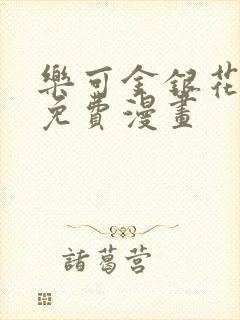 樂可金銀花
免費漫畫
諸葛营